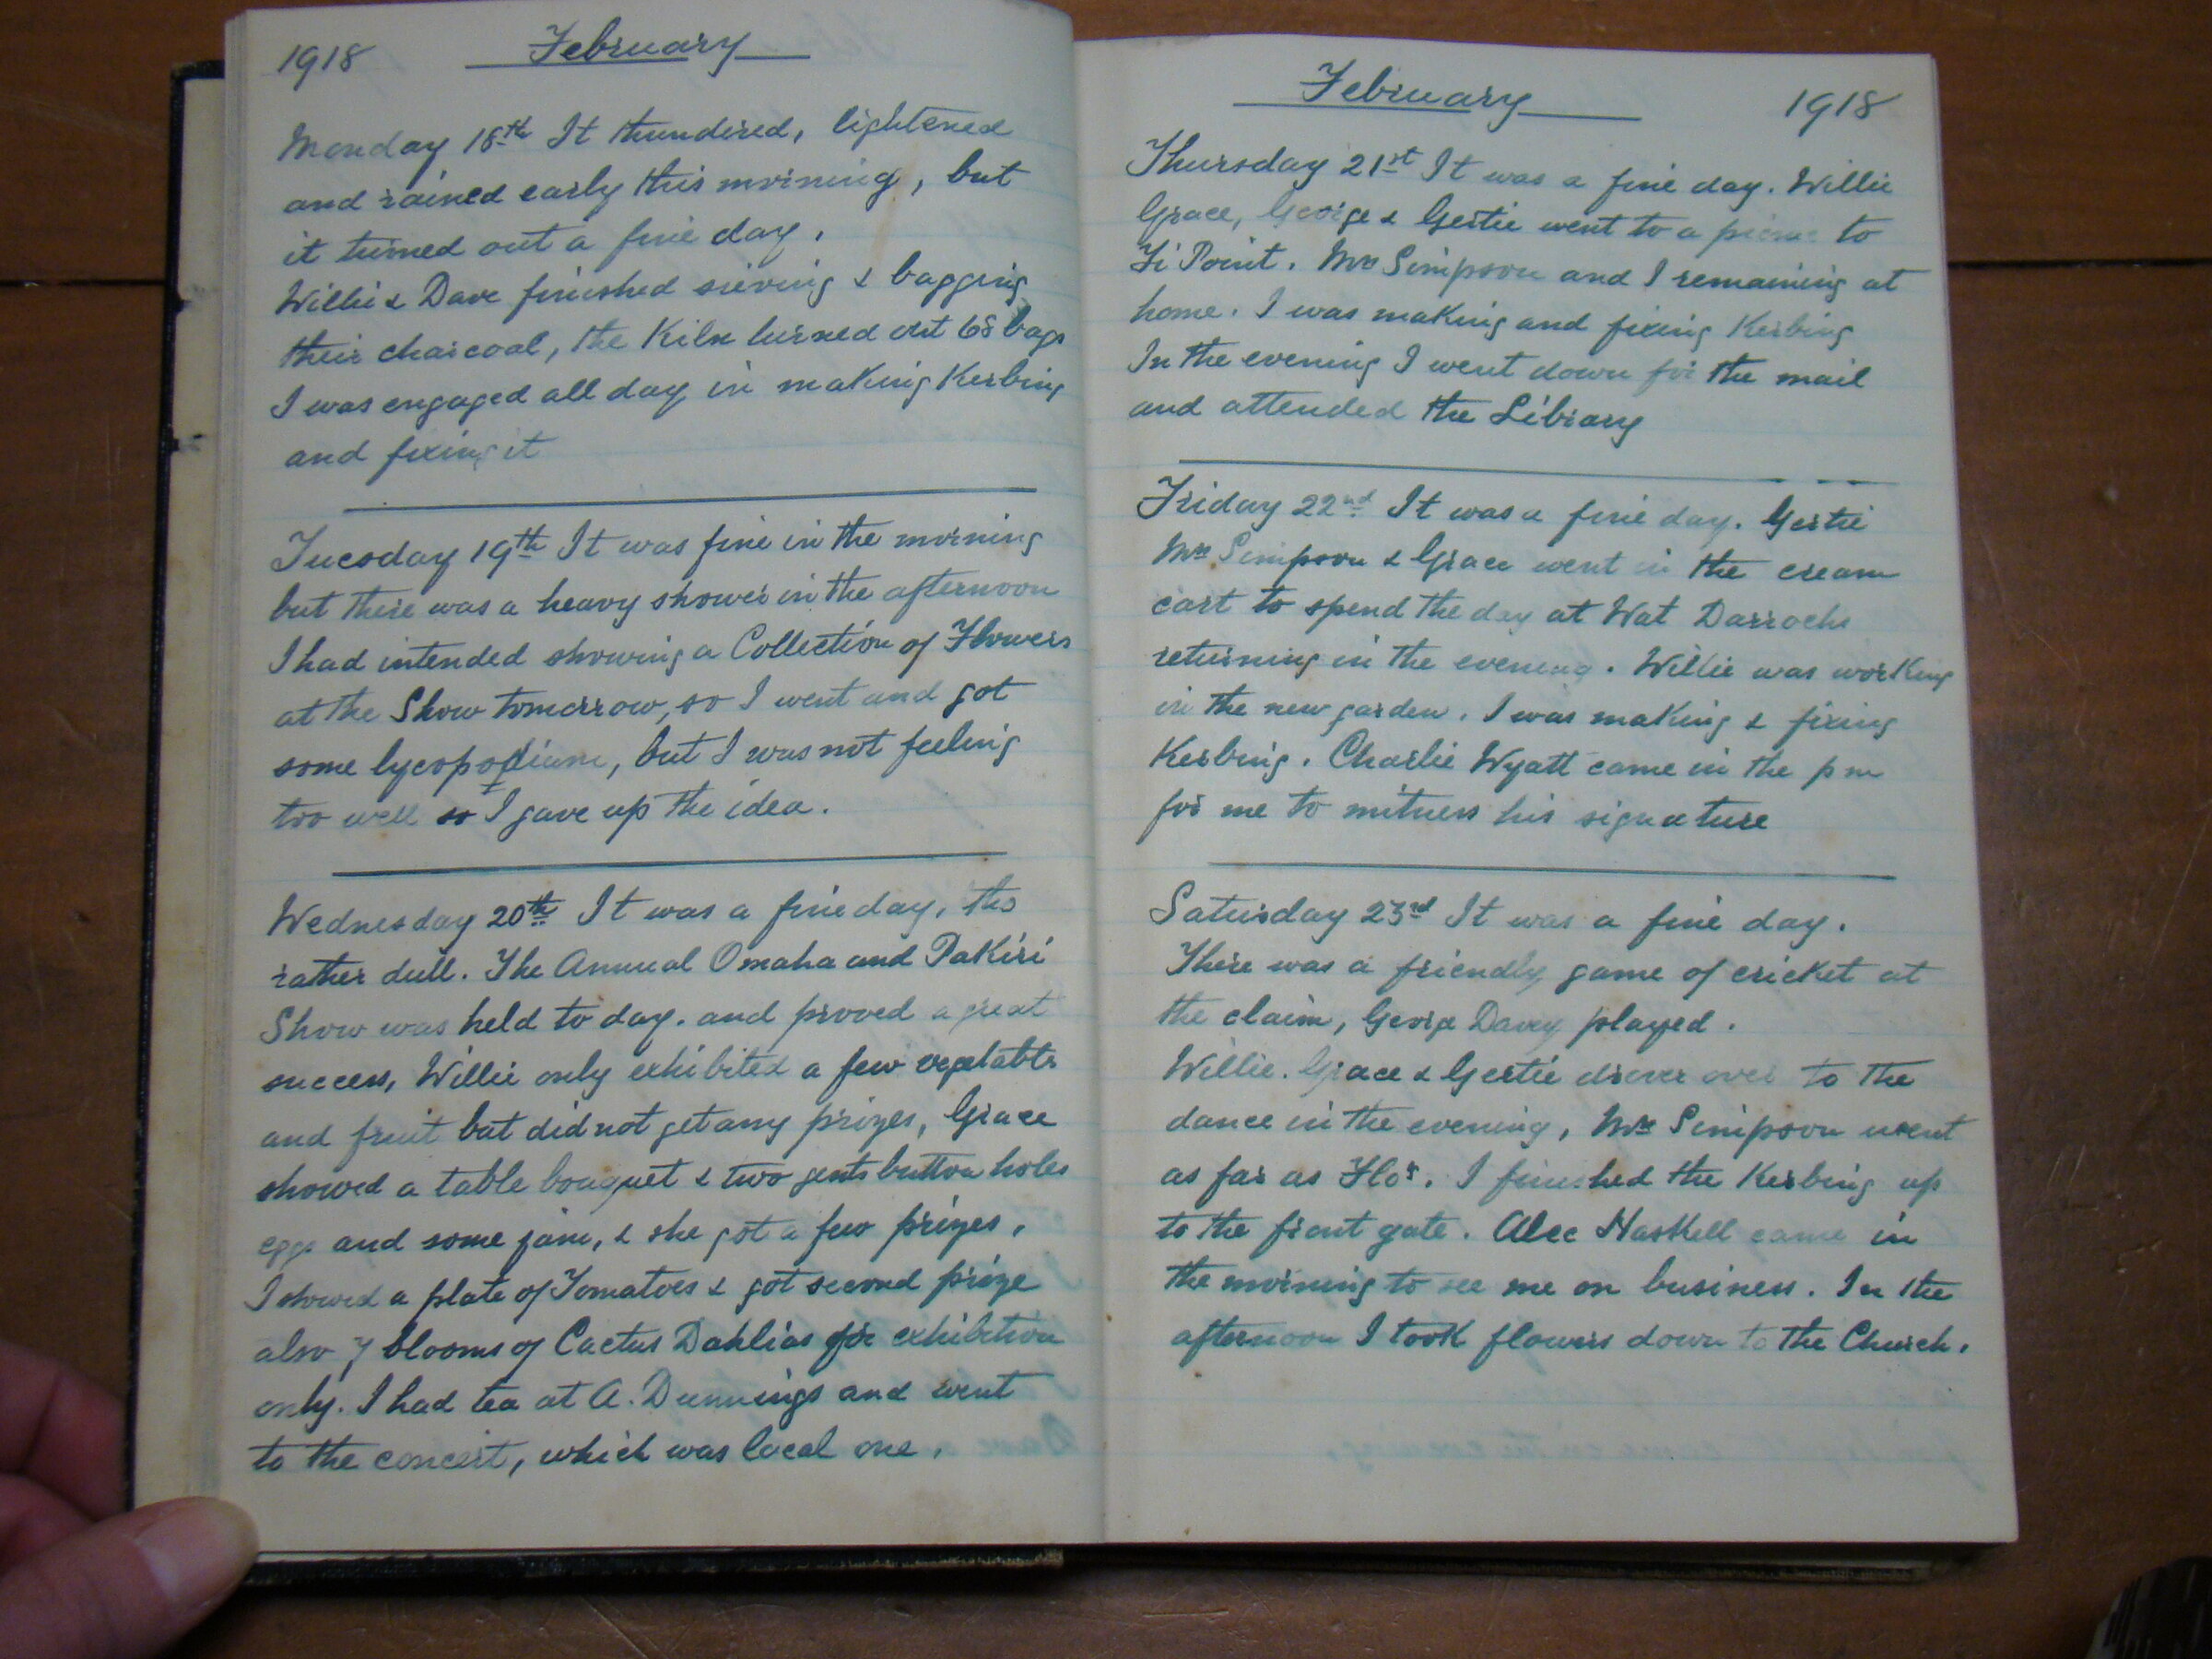 1918 February
Monday 18th It thundered, lightened
and rained early this morning, but
it turned out a fine day.
Willie & Dave finished sieving & bagging
their charcoal, the Kiln turned out 68 bags
I was engaged all day in making Kerbing
and fixing it
Tuesday 19th It was fine in the morning
but there was a heavy shower in the afternoon
I had intended showing a Collection of Flowers
at the Show tomorrow, so I went and got
some lycopodium, but I was not feeling
too well so I gave up the idea.
Wednesday 20th It was a fine day, tho
rather dull. The Annual Omaha and Pakiri
Show was held to day. and proved a great
success, Willie only exhibited a few vegetables
and fruit but did not get any prizes, Grace
showed a table bouquet & two gents button holes
eggs and some jam, & she got a few prizes.
I showed a plate of Tomatoes & got second prize
also 7 blooms of Cactus Dahlias for exhibition
only. I had tea at A. Dunnings and went
to the concert, which was local one.
February 1918
Thursday 21st It was a fine day. Willie
Grace, George & Gertie went to a picnic to
Ti Point. Mrs Simpson and I remaining at
home. I was making and fixing Kerbing
In the evening I went down for the mail
and attended the Library
Friday 22nd It was a fine day. Gertie
Mrs Simpson & Grace went in the cream
cart to spend the day at Wat Darrochs
returning in the evening. Willie was working
in the new garden. I was making & fixing
Kerbing. Charlie Wyatt came in the pm
for me to witness his signature
Saturday 23rd It was a fine day.
There was a friendly game of cricket at
the claim, George Davey played.
Willie. Grace & Gertie drove over to the
dance in the evening, Mrs Simpson went
as far as Flo's. I finished the Kerbing up
to the front gate. Alec Haskell came in
the morning to see me on business. In the
afternoon I took flowers down to the Church.